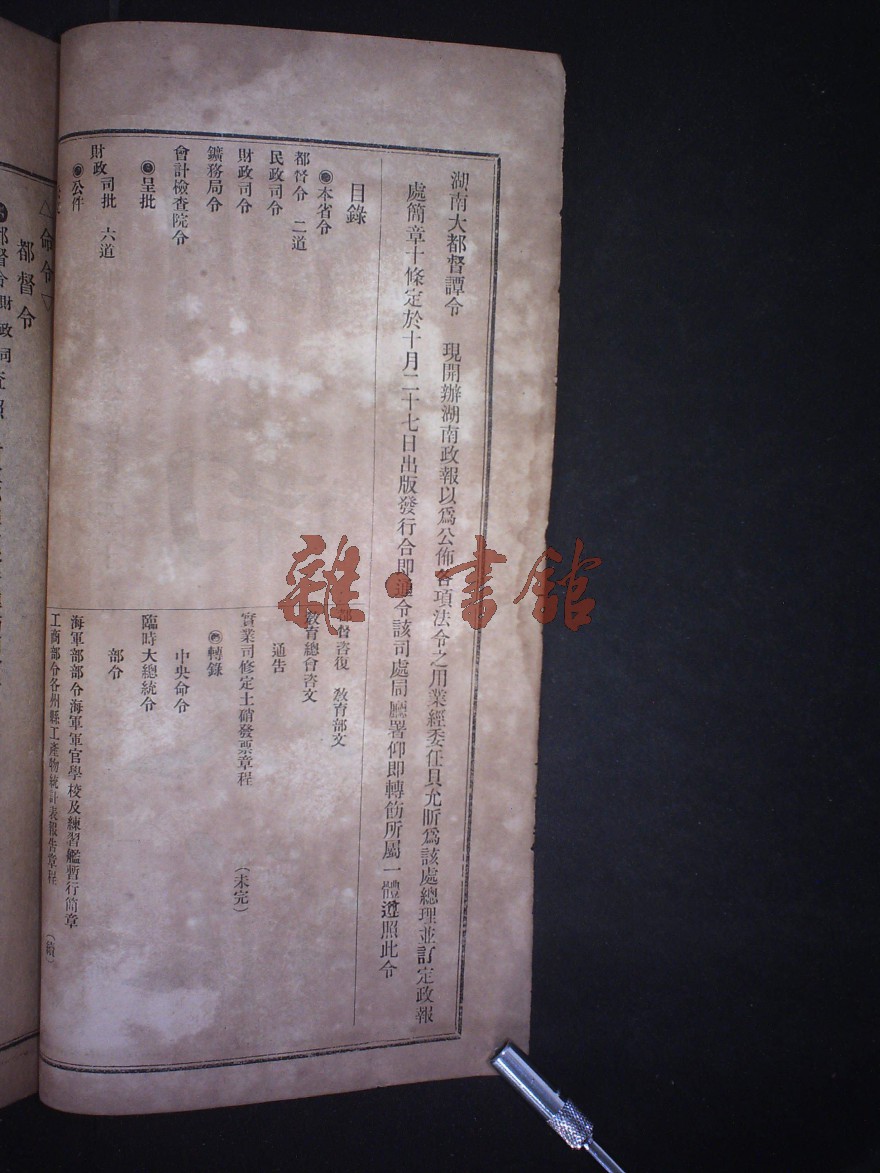 湖南大都督譚令　現開辦湖南政報以爲公佈各項法令之用業經委任貝允昕爲該處總理並訂定政報
處簡章十條定於十月二十七日出版發行合即通令該司處局廳署仰即轉飭所屬一體遵照此令
目錄
本省令
都督令　二道
民政司令
財政司令
鑛務局令
會計檢查院令
呈批
財政司批　六道
公件
都督咨復　敎育部文
敎育總會咨文
通告
實業司修定土硝發票章程　（未完）
轉錄
中央命令
臨時大總統令
部令
海軍部部令海軍軍官學校及練習艦暫行簡章
工商部令各州縣工產物統計表報告章程　（續）
△命令▽
都督令
都督令財政司查照
雜·書館